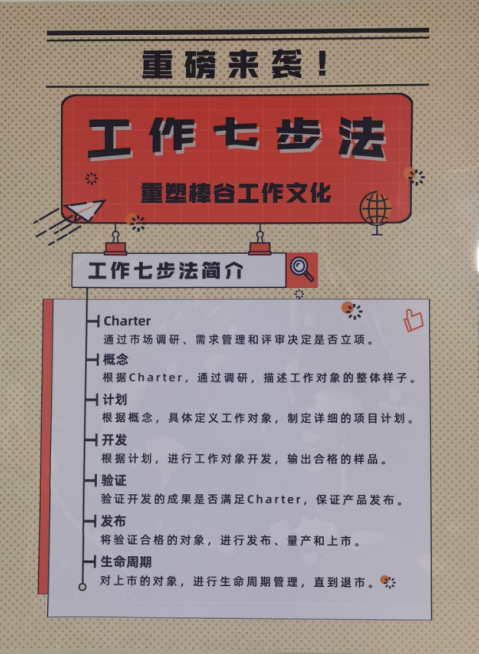 重磅来袭！
工作七步法
重塑棒谷工作文化
工作七步法简介
Charter
通过市场调研、需求管理和评审决定是否立项。
概念
根据Charter，通过调研，描述工作对象的整体样子。
计划
根据概念，具体定义工作对象，制定详细的项目计划。
开发
根据计划，进行工作对象开发，输出合格的样品。
验证
验证开发的成果是否满足Charter，保证产品发布。
发布
将验证合格的对象，进行发布、量产和上市。
生命周期
对上市的对象，进行生命周期管理，直到退市。